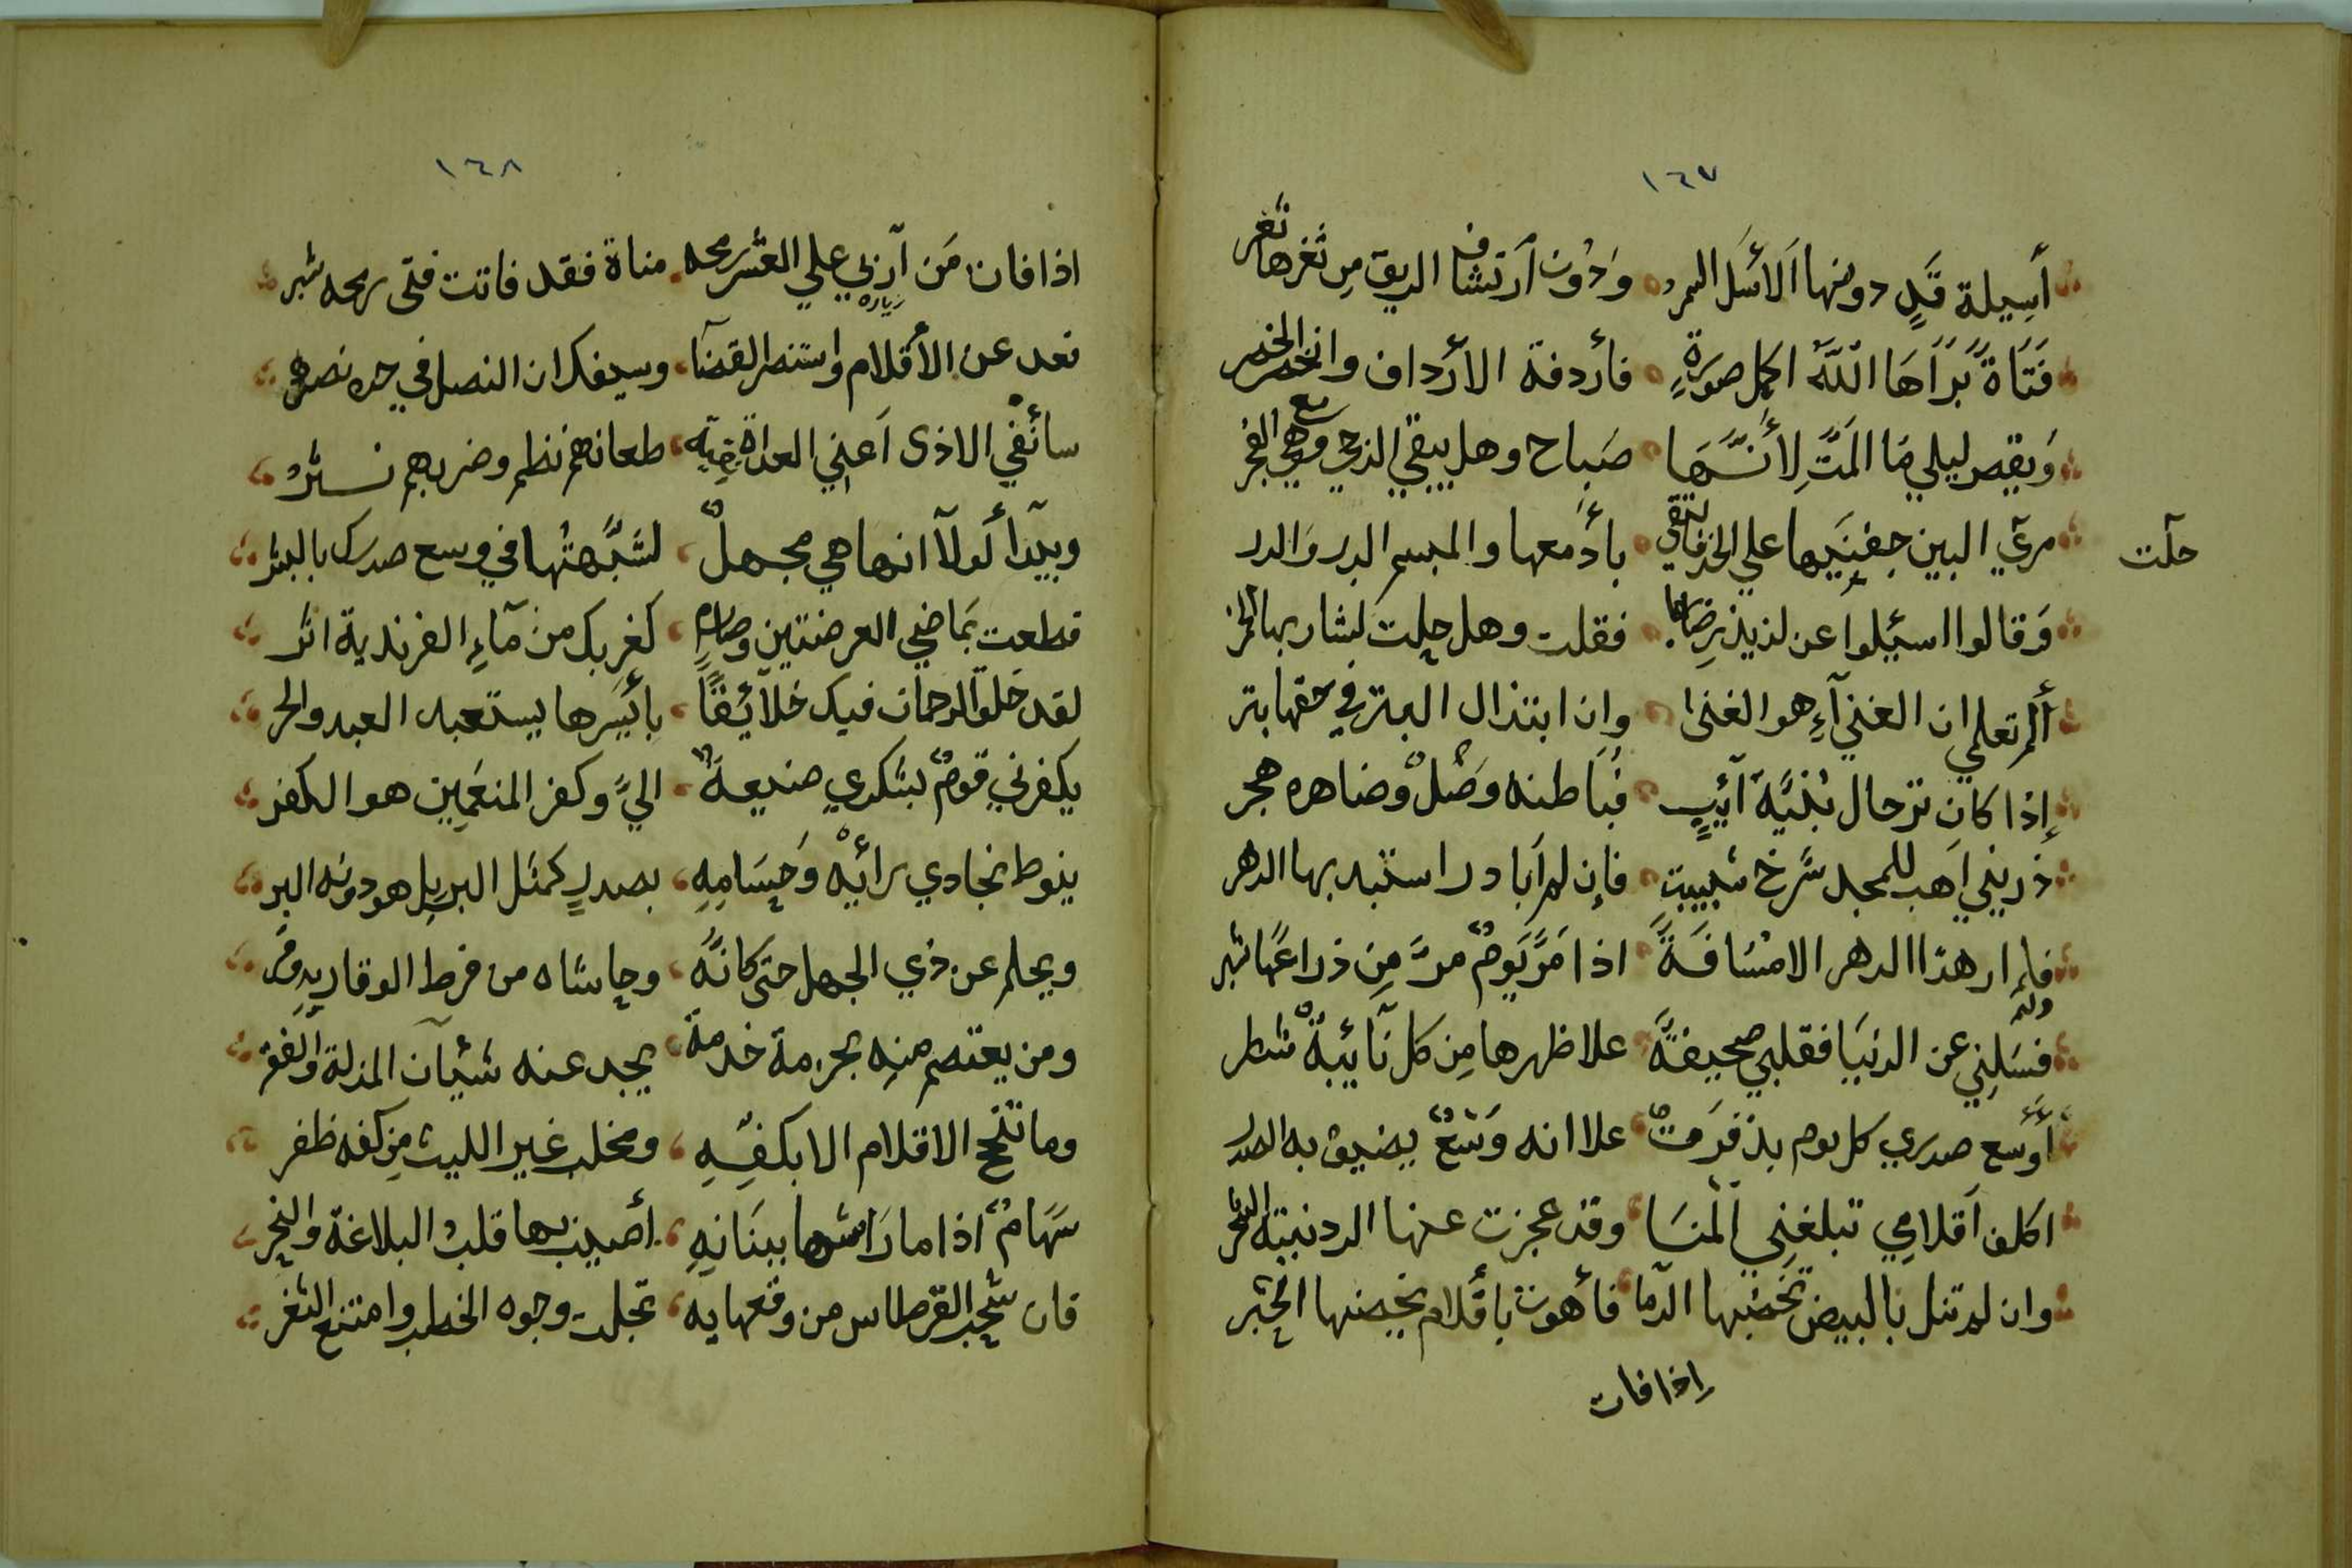 ١٦٧
أسيلة قد دونها الأسل السمر ودون ارتشاف الريق من ثغرها ثغر
فتاة براها الله اكمل صورة فأردفة الأرداف واختصر الخصر
ويقصر ليلي ما المت لأنها صباح وهل يبقي الدجي مع الفجر
مري البين جفنيها علي الخد فالتقي بأدمعها والمبسم الدر والدر
حلت
وقالوا اسئلوا عن لذيذ رضابها فقلت وهل حلت لشاربها الخمر
ألم تعلمي ان الغنآء هو الغنا وان ابتذال البتر في حقها بتر
إذا كان ترحال بنية آئب فباطنه وصل وضاهره هجر
ذريني اهب للمجد شرخ شبيبتي فإن لم ابادر استبد بها الدهر
فلم ار هذا الدهر الا مسافة اذا مر يوم مر من ذراعها شبر
فسلني عن الدنيا فقلبي صحيفة علا ظهرها من كل نائبة شطر
أوسع صدري كل يوم بذفرة علا انه وسع يضيق به الصدر
اكلف اقلامي تبلغني المنا وقد عجزت عنها الردنيته السمر
وان لم تنل بالبيض تخضبها الدما فأهون بأقلام يخضبها الحبر
إذا فات
١٦٨
اذا فات من أربي علي العشر رمحه مناة فقد فاتت فتى رمحه شبر
تعد عن الأقلام واستنصر القضآ وسيفك ان النصل في حده نصر
سأنفي الاذى اعني العداة بفتيه طعانهم نظم وضربهم نثر
وبيدا لولا انها هي مجهل لشبهتها في وسع صدرك بالبشر
قطعت بماضي العرضتين وصارم كغربك من مآء الفرندية اثر
لقد خلق الرحمان فيك خلائقا بأيسرها يستعبد العبد والحر
يكفرني قوم لشكري صنيعة الي وكفر المنعمين هو الكفر
ينوط نجادي رائه وحسامه بصدر كمثل البر بل هو دونه البر
ويحلم عن ذي الجهل حتى كانه وحاشاه من فرط الوقار به وقر
ومن يعتصم منه بحرمة خدمة يجد عنه شيآن المذلة والفقر
وما تنجح الاقلام الا بكفه ومخلب غير الليث من كفه ظفر
سهام اذا ما راشها ببنانه أصيب بها قلب البلاغة والنحر
فان شحب القرطاس من وقعها به تجلت وجوه الخطب وامتنع الثغر